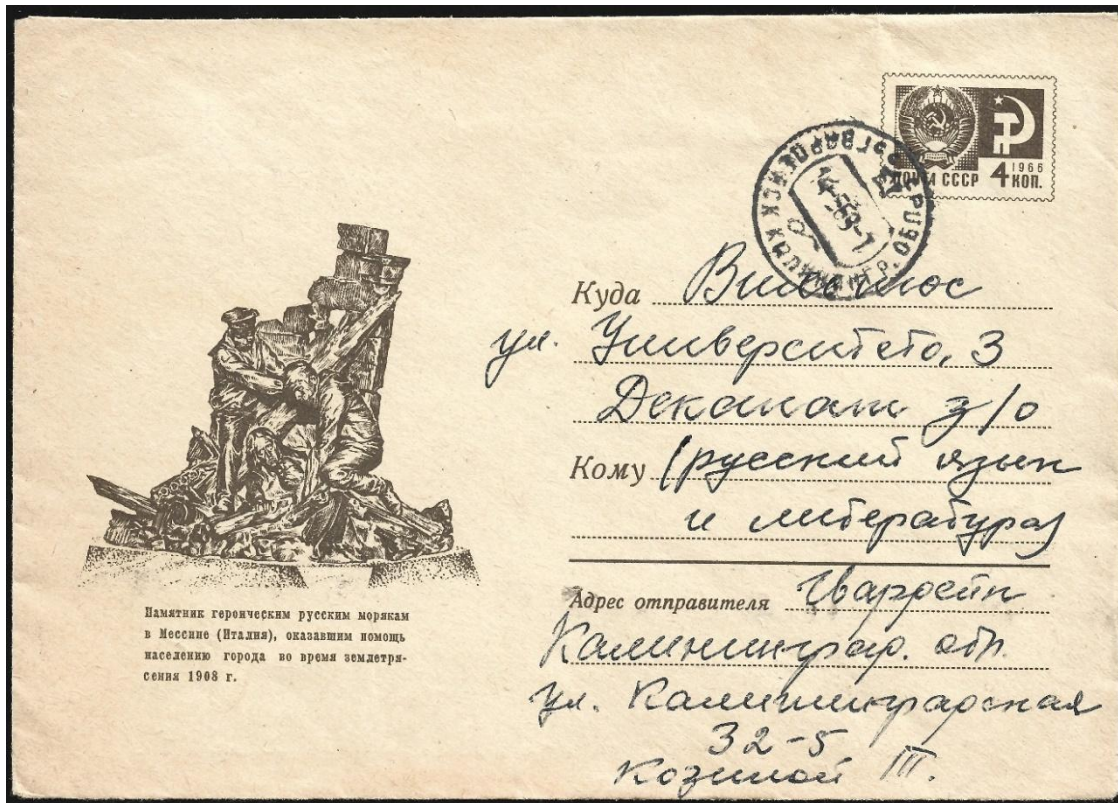 ПОЧТА СССР 4 КОП.
1966
ГВАРДЕЙСК КАЛИНИНГР. ОБ
Куда Вильнюс
ул. Университето, 3
Деканат з/о
Кому (русский язык
и литература)
Адрес отправителя Гвардейск
Калининград. обл.
ул. Калининградская
32-5
Козиной
Памятник героическим русским морякам
в Мессине (Италия), оказавшим помощь
населению города во время землетря-
сения 1908 г.